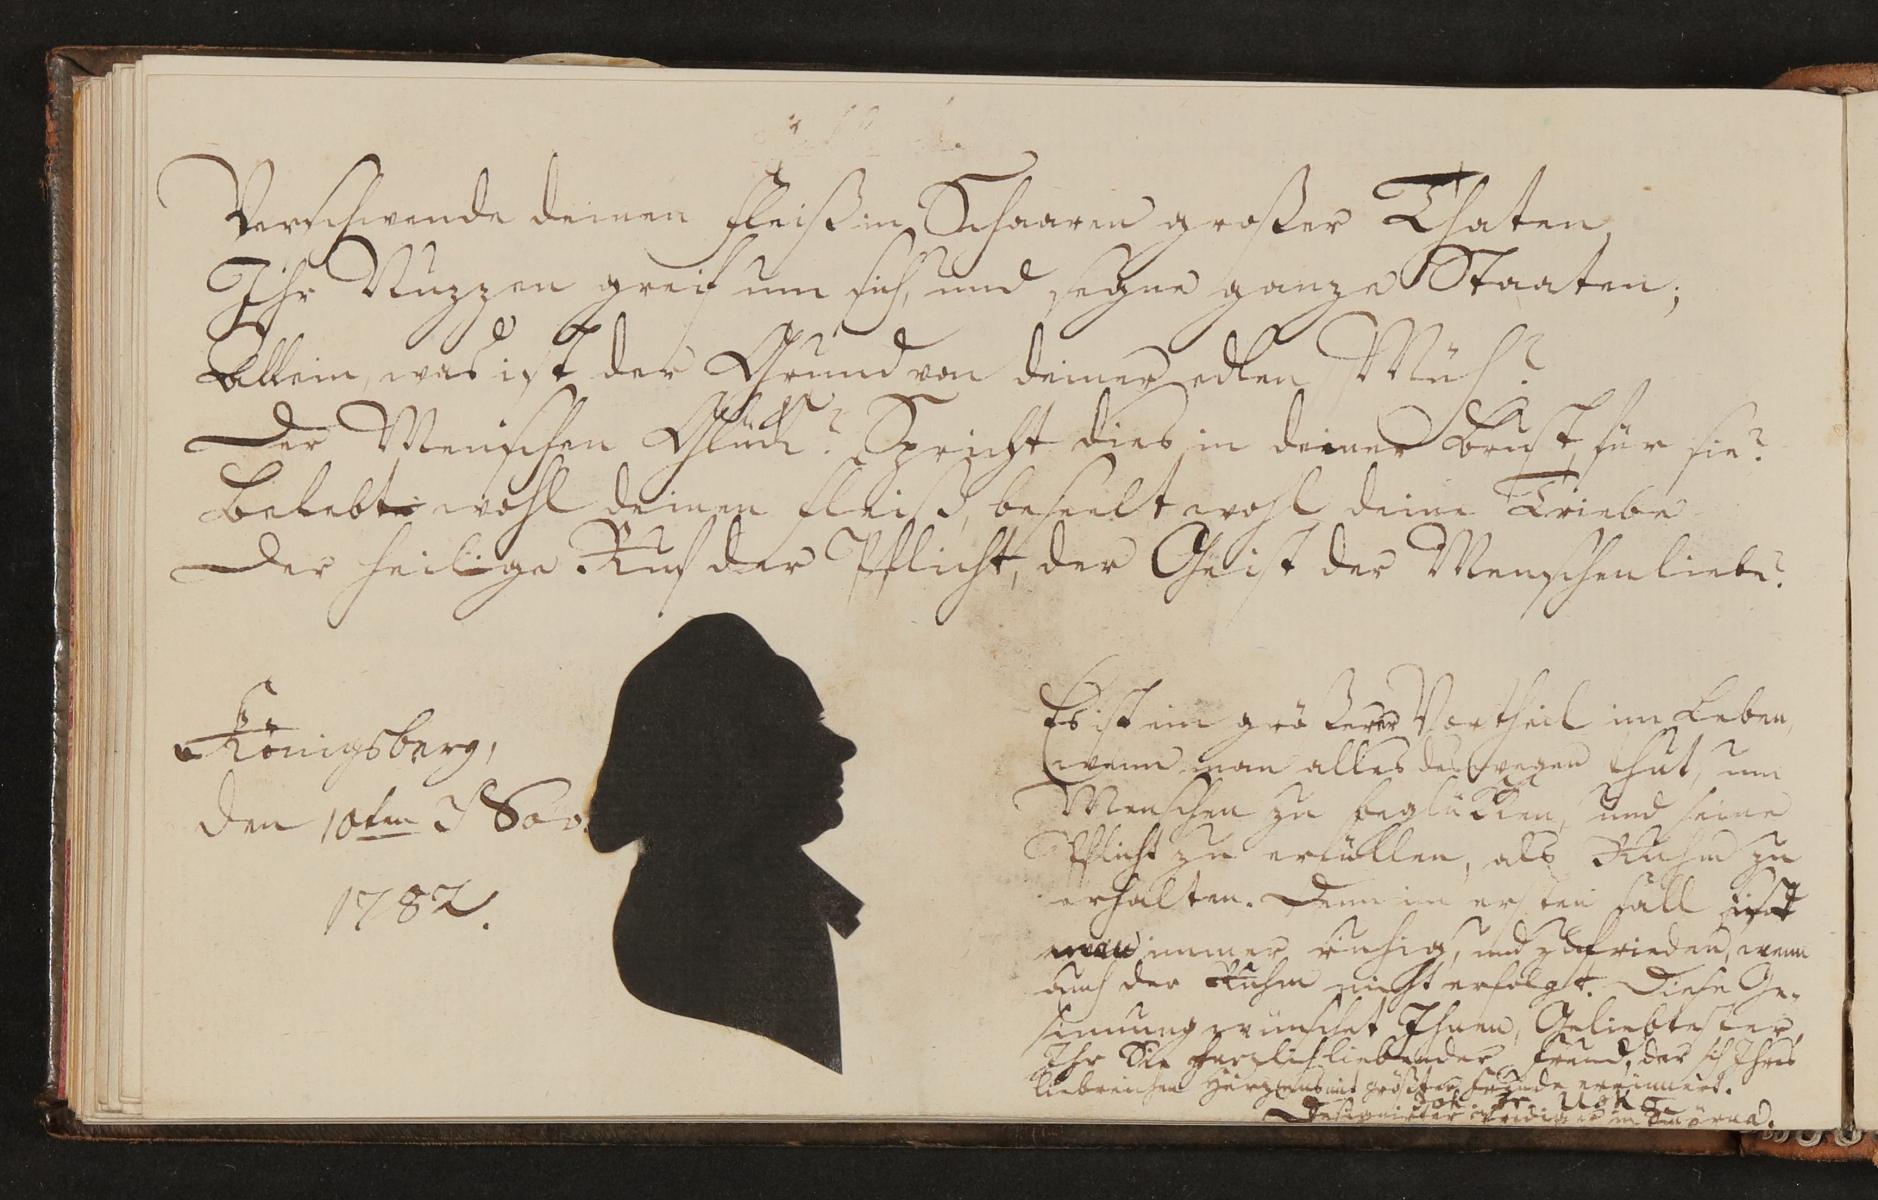 Verschwende deinen Fleiß in Schaaren großer Thaten,
Ihr Nuzzen greif um sich, und segne ganze Staaten;
Allein, was ist der Grund von deiner edlen Müh?
Der Menschen Glück? Spricht dies in deiner Brust für sie?
Belebt wohl deinen Fleiß, beseelt wohl deine Triebe
Der heilige Ruf der Pflicht, der Geist der Menschenliebe?
Königsberg,
den 10ten Nov.
1782.
Es ist ein größerer Vortheil im Leben,
wenn man alles deswegen thut, um
Menschen zu beglükken, und seine
Pflicht zu erfüllen, als Ruhm zu
erhalten. Denn im ersten Fall ist
man immer ruhig, und zufrieden, wenn
auch der Ruhm nicht erfolgt. Diese Ge-
sinnung wünschet Ihnen, Geliebtester,
Ihr Sie herzlichliebender Freund, der sich Ihres
liebreichen Herzens mit größter Freude erinnert.
Designirter Prediger in